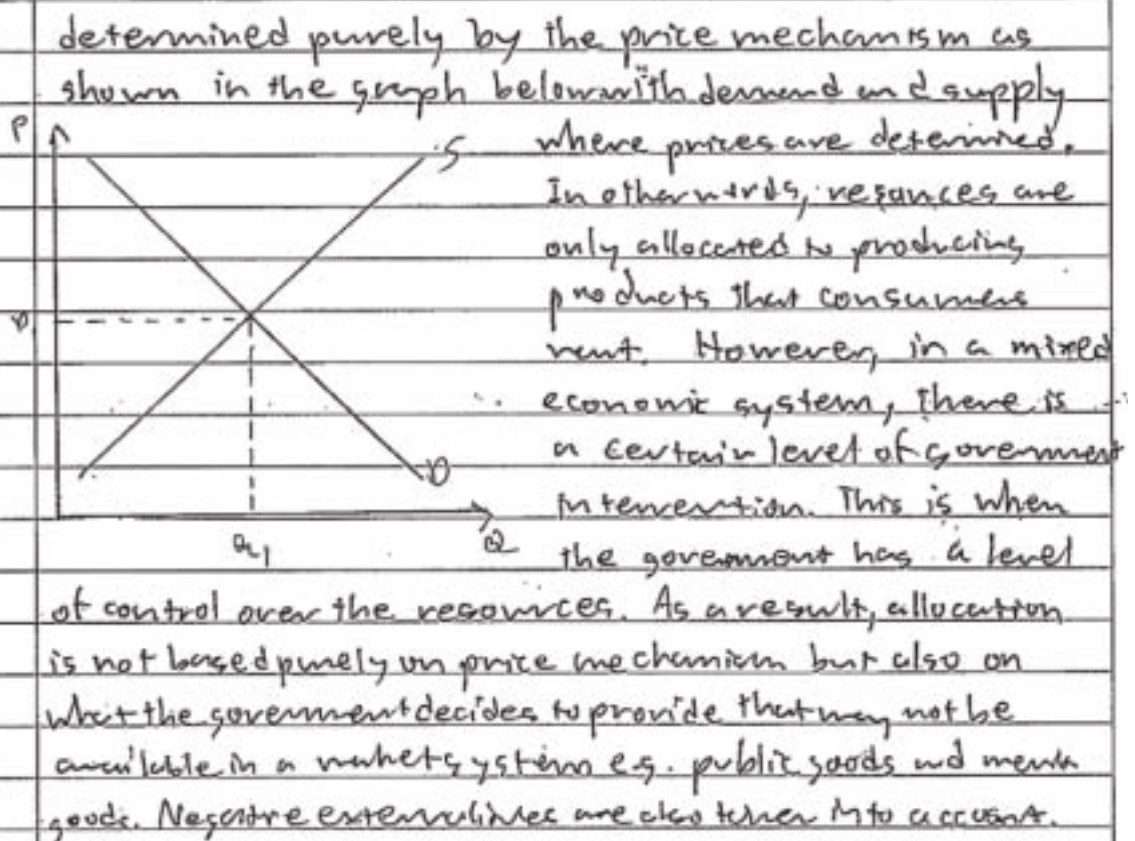 determined purely by the price mechanism as
shown in the graph below with demand and supply
P
S
where prices are determined.
In other words, resources are
only allocated to producing
products that consumers
P
want. However, in a mixed
economic system, there is
a certain level of government
D
intervention. This is when
Q1
Q
the government has a level
of control over the resources. As a result, allocation
is not based purely on price mechanism but also on
what the government decides to provide that may not be
available in a market system e.g. public goods and merit
goods. Negative externalities are also taken into account.